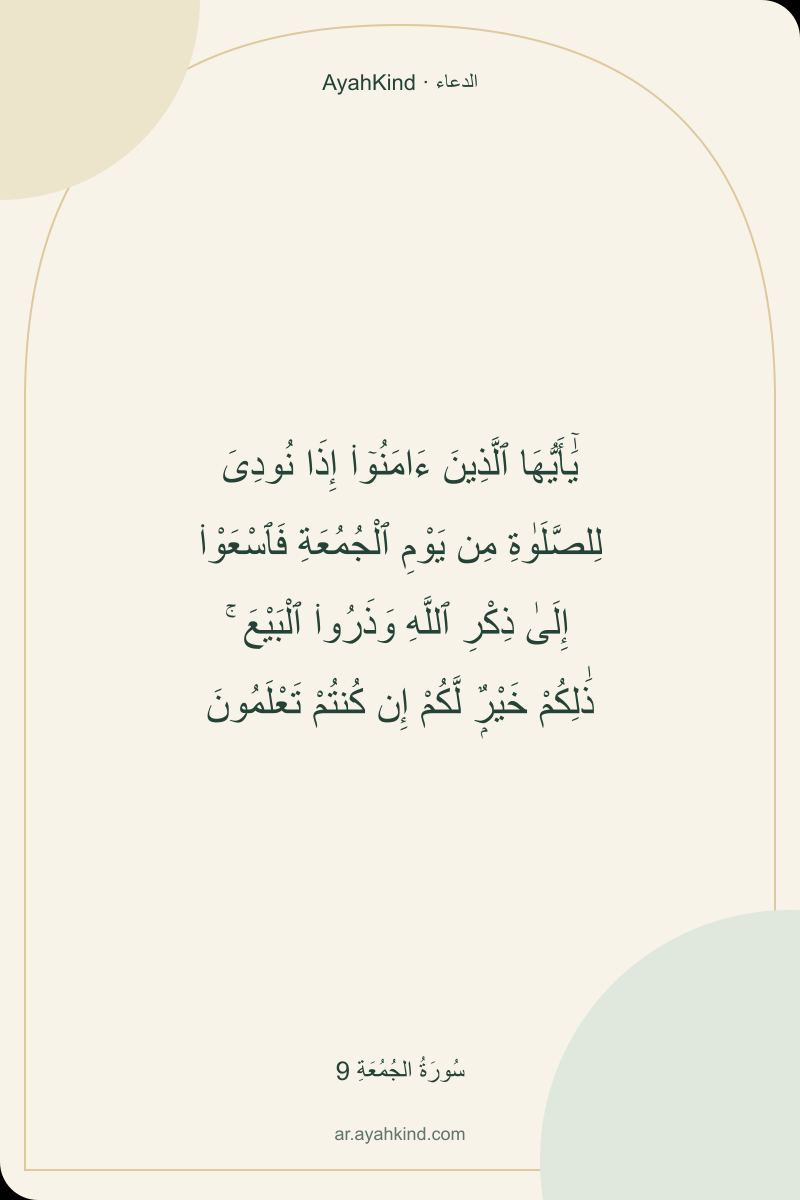 AyahKind · الدعاء
يَٰٓأَيُّهَا ٱلَّذِينَ ءَامَنُوٓا۟ إِذَا نُودِىَ
لِلصَّلَوٰةِ مِن يَوْمِ ٱلْجُمُعَةِ فَٱسْعَوْا۟
إِلَىٰ ذِكْرِ ٱللَّهِ وَذَرُوا۟ ٱلْبَيْعَ ۚ
ذَٰلِكُمْ خَيْرٌۭ لَّكُمْ إِن كُنتُمْ تَعْلَمُونَ
سُورَةُ الجُمُعَةِ 9
ar.ayahkind.com